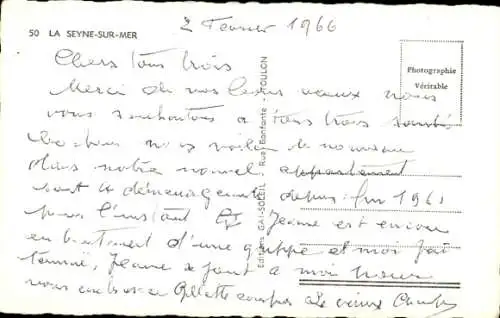 50 LA SEYNE-SUR-MER
2 Fevrier 1966
Photographie
Véritable
Editions GAI-SOLEIL Rue Bontante - TOULON
Chers tous trois
Merci de vos bons vœux nous
vous souhaitons a tous trois santé
bonheur nous voilà de nouveau
dans notre nouvel appartement
sont déménagements depuis fin 1961
pour l'instant Jeanne est encore
en traitement d'une grippe et moi j'ai
terminé, Jeanne se joint a moi pour
vous embrasser